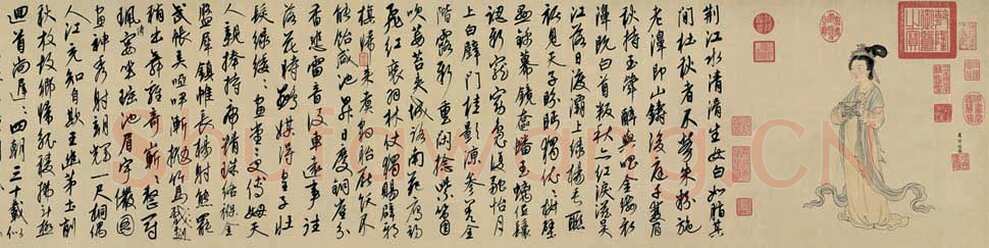 荆江水清滑生女白如脂其
間杜秋者不勞朱粉施
老濞即山鑄後庭千雙眉
秋持玉斝醉與唱金縷衣
濞既白首叛秋亦紅淚滋吳
江落日渡灞上綠楊垂聯
裾見天子盼眄獨依依椒壁
懸錦幕鏡奩蟠玉螭低鬟
認新寵窈窕復融怡月
上白璧門桂影涼參差金
階露新重閑捻紫簫
吹莓苔夾城路南苑雁初
飛紅羽林仗獨賜辟邪
旗歸来煮豹胎厭飫不
能飴咸池昇日慶銅雀分
香悲雷音後車遠事往
落花時燕禖得皇子壯
髮綠緌緌畫堂受傅姆天
人親捧持虎精珠絡褓金
盤犀鎮帷長楊射熊羆
武帳弄啞咿漸抛竹馬戲
稍出舞雞奇嶄嶄整冠
珮宴坐瑤池眉宇儼圖
畫神秀射朝輝一尺桐偶
人江充知自欺王幽茅土削
秋放故鄉歸觚稜拂斗極
回首尚遲遲四朝三十載似
Shufawang.CN